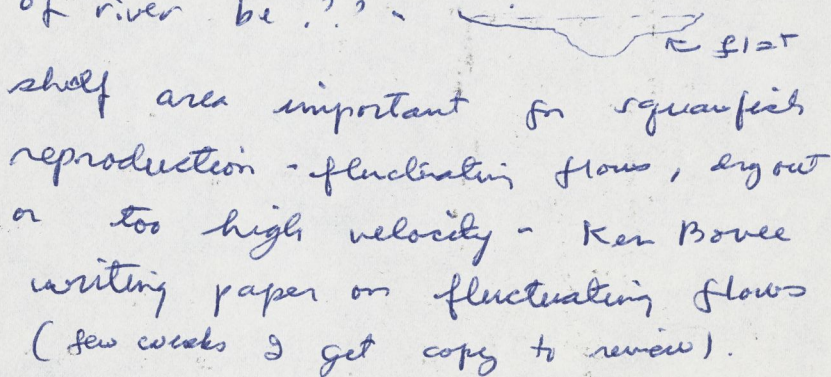 of river be ??-
← flat
shelf area important for squawfish
reproduction - fluctuating flows, dry out
or too high velocity - Ken Bovee
writing paper on fluctuating flows
(few weeks I get copy to review).